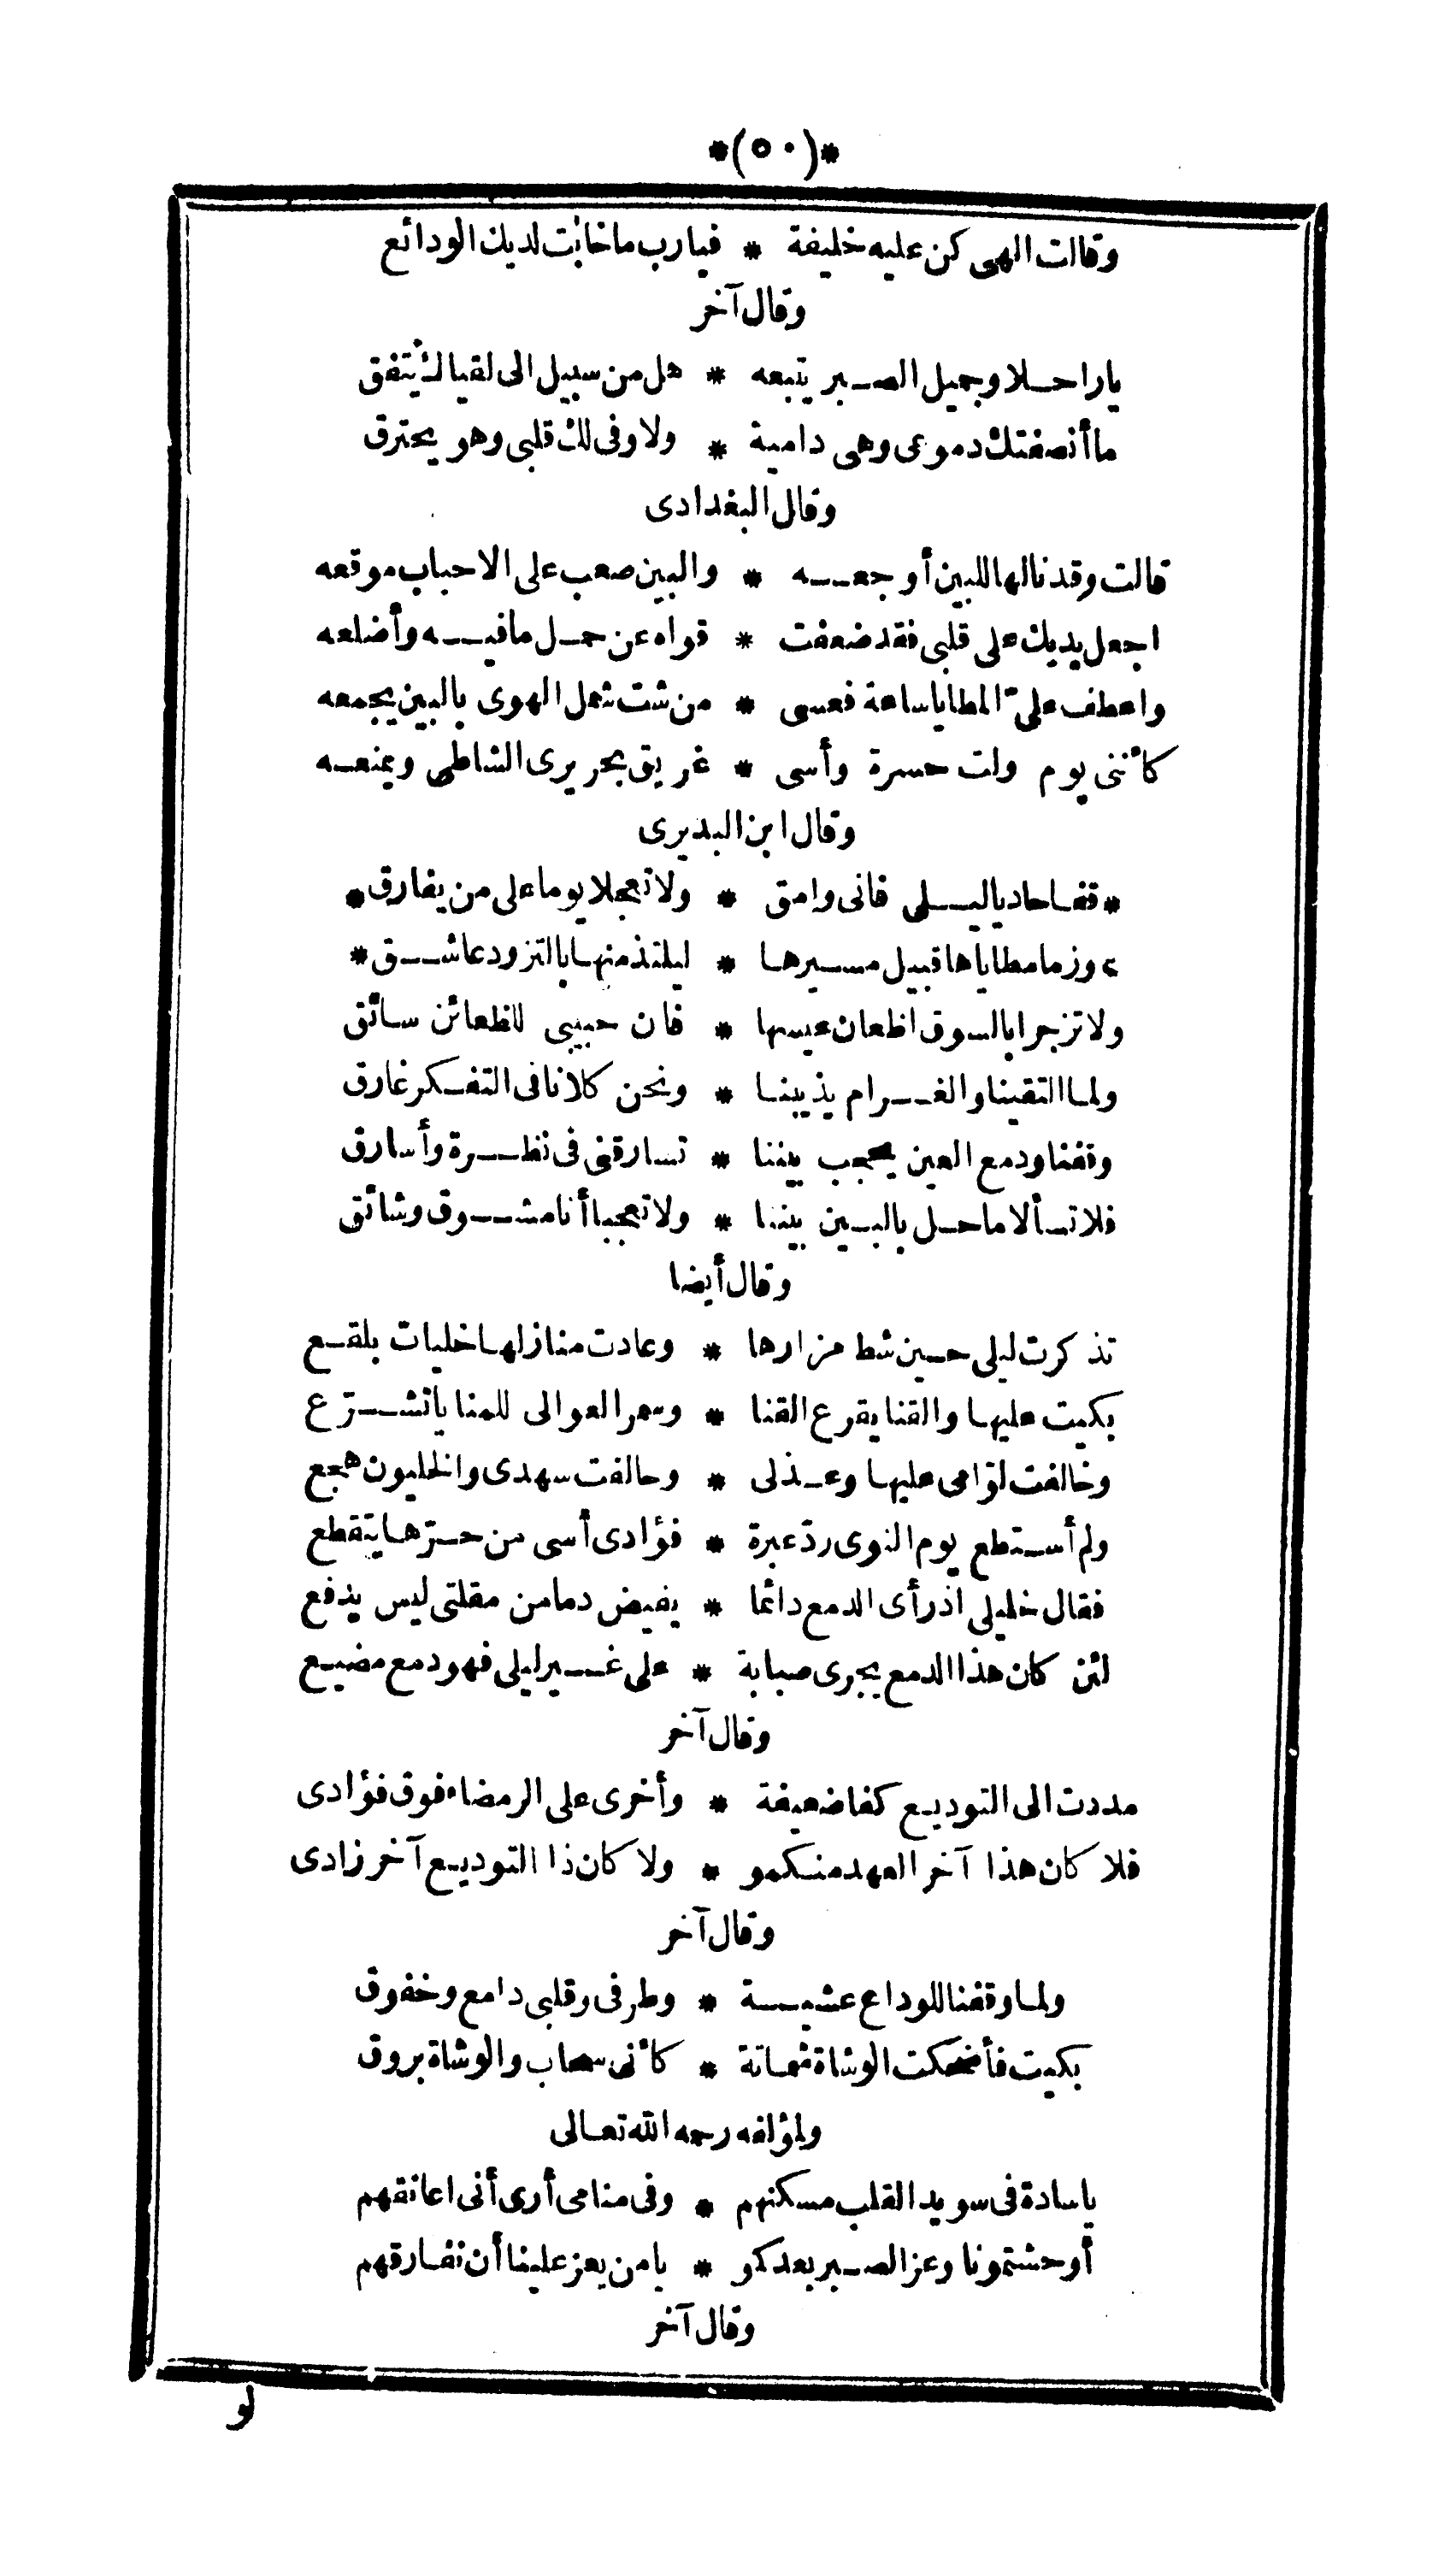 *(٥٠)*
وقالت الهى كن عليه خليفة * فيارب ماخابت لديك الودائع
وقال آخر
ياراحلا وجميل الصبر يتبعه * هل من سبيل الى لقياك يتفق
ماأنصفتك دموعى وهى دامية * ولا وفى لك قلبى وهو يحترق
وقال البغدادى
قالت وقد نالها للبين أوجعه * والبين صعب على الاحباب موقعه
اجعل يديك على قلبى فقد ضعفت * قواه عن حمل مافيه وأضلعه
واعطف علىّ المطايا ساعة فعسى * من شت شمل الهوى بالبين يجمعه
كأننى يوم ولت حسرة وأسى * غريق بحر يرى الشاطى ويمنعه
وقال ابن البديرى
* قفا حاديا ليلى فانى وامق * ولا تعجلا يوما على من يفارق *
وزما مطاياها قبيل مسيرها * ليلتذ منها بالتزود عاشق *
ولا تزجرا بالسوق اظعان عيسها * فان حبيبى للظعائن سائق
ولما التقينا والغرام يذيبنا * ونحن كلانا فى التفكر غارق
وقفنا ودمع العين يحجب بيننا * تسارقنى فى نظرة وأسارق
فلا تسألا ماحل بالبين بيننا * ولا تعجبا أنا مشوق وشائق
وقال أيضا
تذكرت ليلى حين شط مزارها * وعادت منازلها خليات بلقع
بكيت عليها والقنا يقرع القنا * وسمر العوالى للمنايا تشرّع
وخالفت لوّامى عليها وعذلى * وحالفت سهدى والخليون هجع
ولم أستطع يوم النوى ردّ عبرة * فؤادى أسى من حرّها يتقطع
فقال خليلى اذ رأى الدمع دائما * يفيض دما من مقلتى ليس يدفع
لئن كان هذا الدمع يجرى صبابة * على غير ليلى فهو دمع مضيع
وقال آخر
مددت الى التوديع كفا ضعيفة * وأخرى على الرمضاء فوق فؤادى
فلا كان هذا آخر العهد منكمو * ولا كان ذا التوديع آخر زادى
وقال آخر
ولما وقفنا للوداع عشية * وطرفى وقلبى دامع وخفوق
بكيت فأضحكت الوشاة شماتة * كأنى سحاب والوشاة بروق
ولمؤلفه رحمه الله تعالى
ياسادة فى سويد القلب مسكنهم * وفى منامى أرى أنى اعانقهم
أوحشتمونا وعز الصبر بعدكمو * يامن يعز علينا أن نفارقهم
وقال آخر
لو